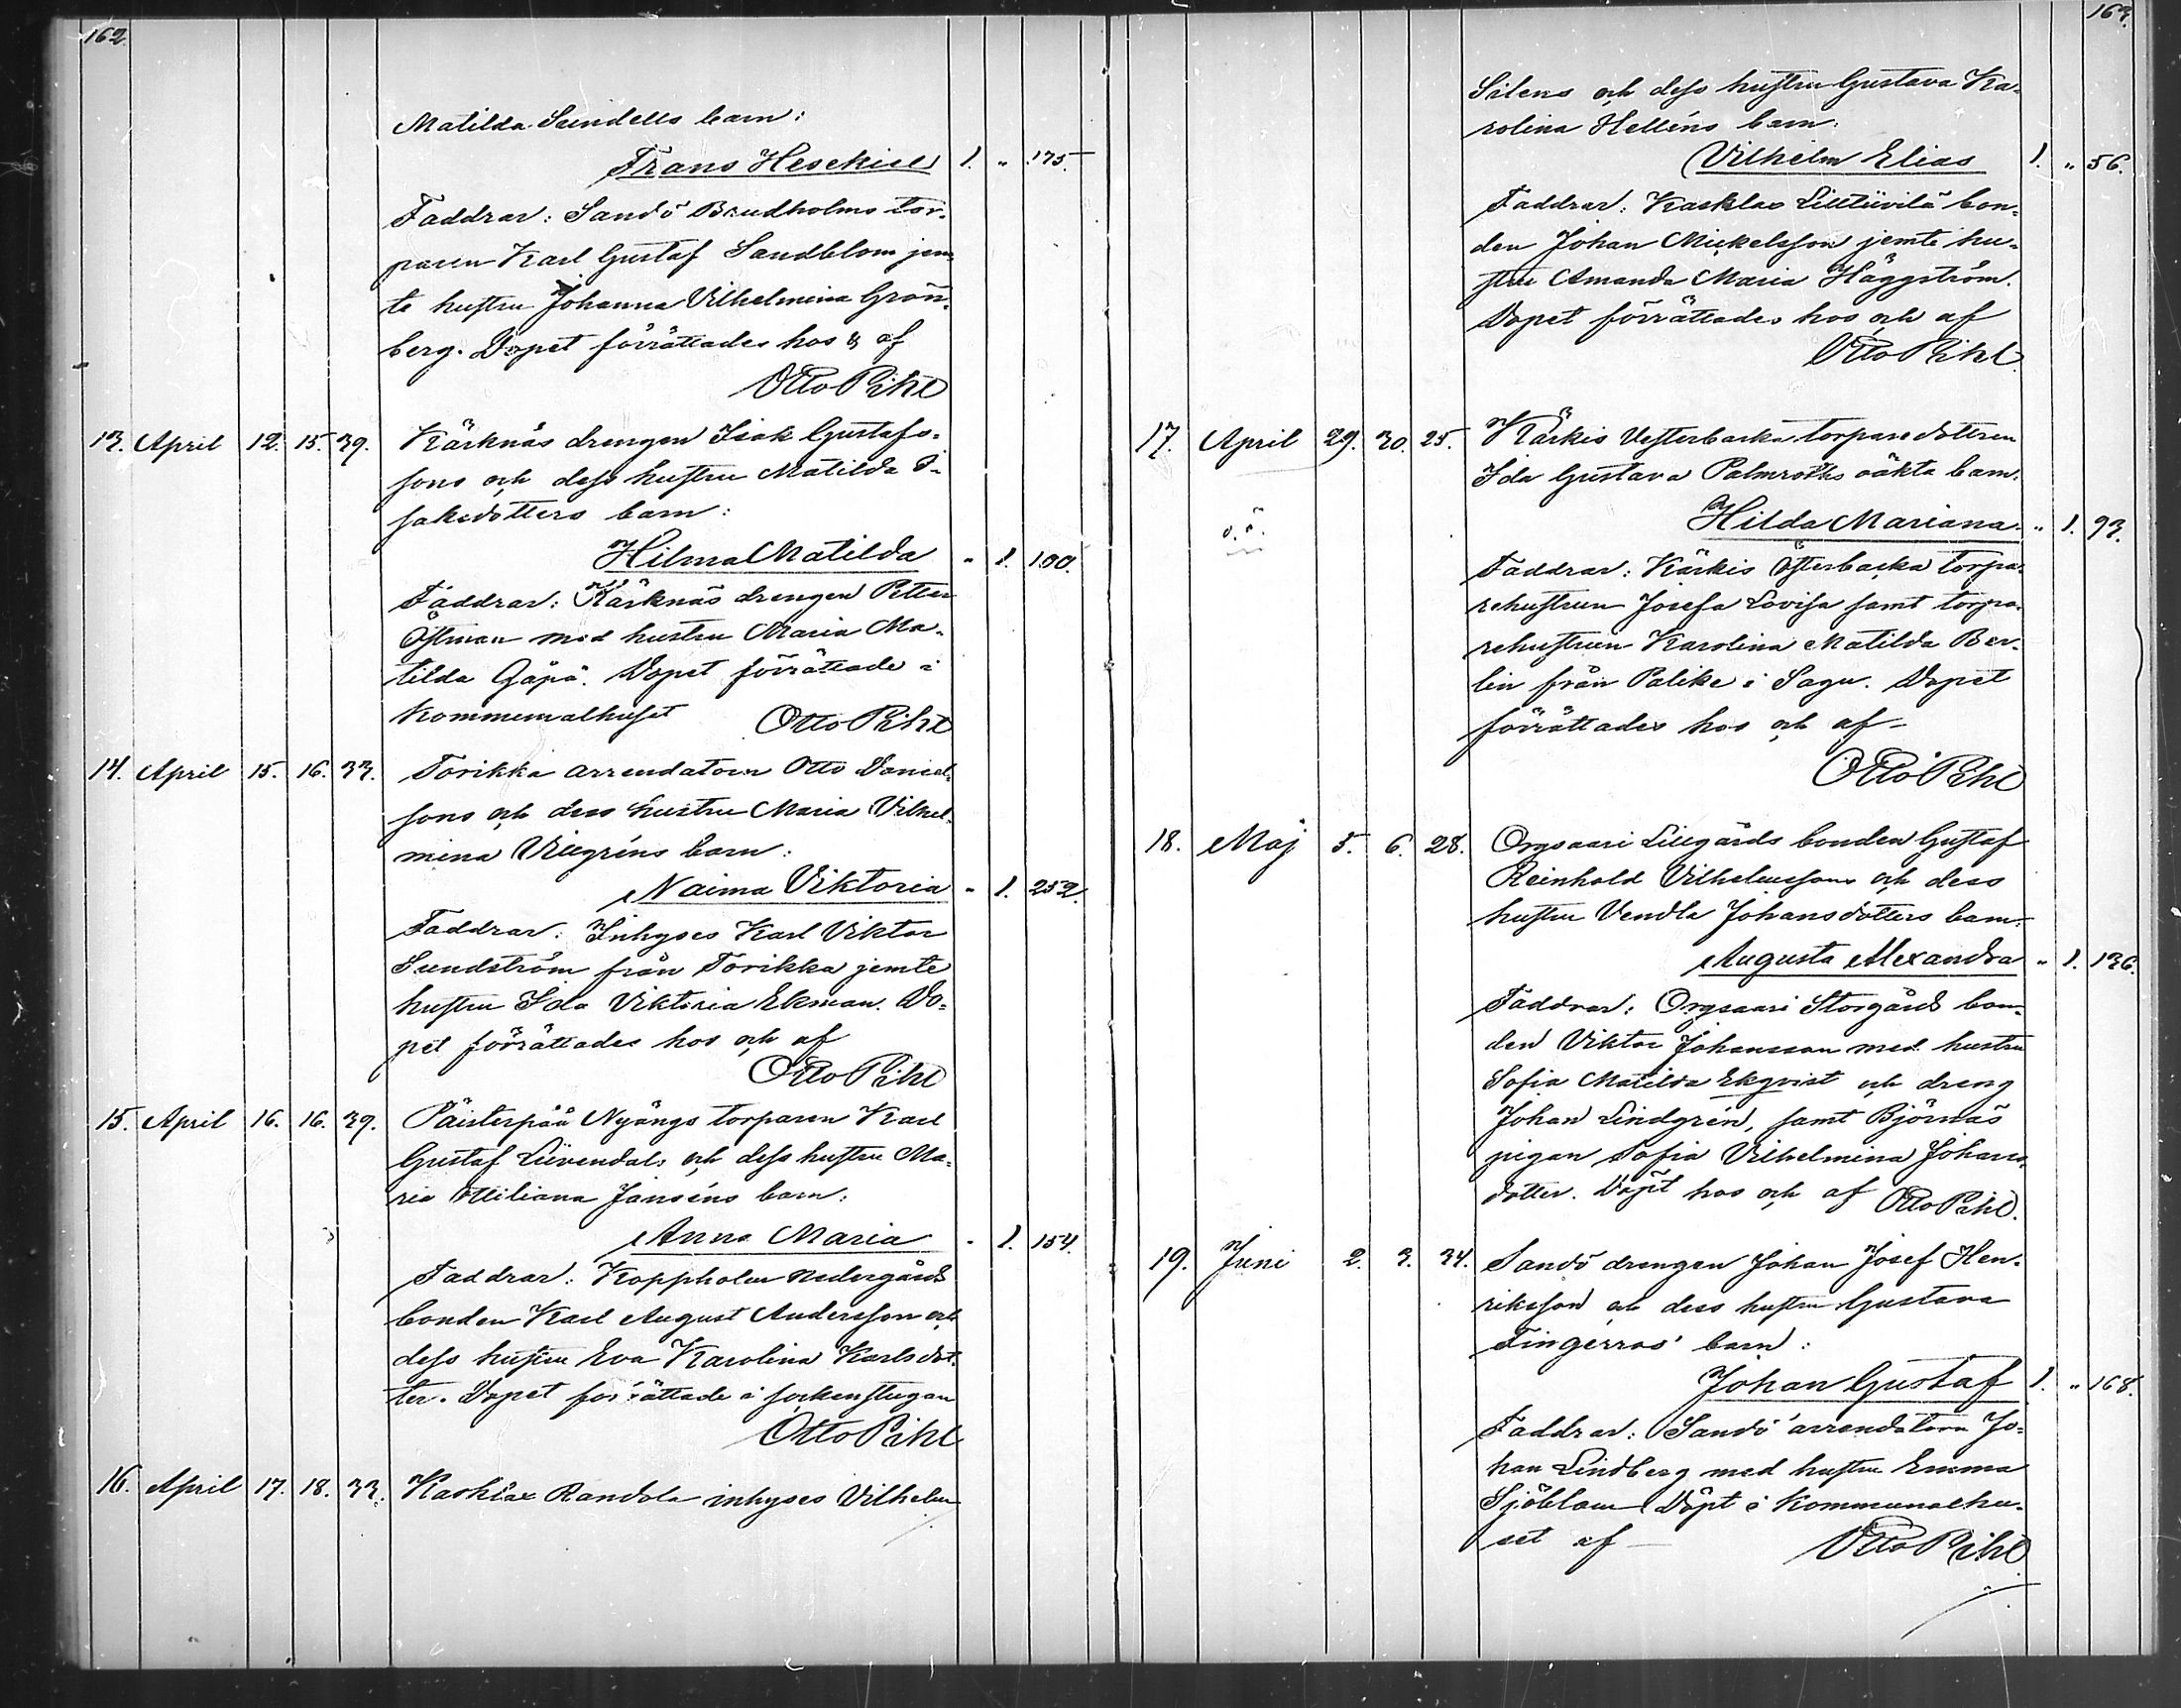 162.
Matilda Sundells barn:
Frans Hesekiel 1. „ 175.
Faddrar: Sandö Brudholms tor-
paren Karl Gustaf Sandblom jem-
te hustru Johanna Vilhelmina Grön-
berg. Dopet förrättades hos & af
Otto Pihl
13. April 12. 15. 39. Kärknäs drengen Isak Gustafs-
sons och dess hustru Matilda I-
saksdotters barn:
Hilma Matilda „ 1. 100.
Faddrar: Kärknäs drengen Petter
Östman med hustru Maria Ma-
tilda Gåpå. Dopet förrättade i
Kommunalhuset Otto Pihl
14. April 15. 16. 33. Torikka arrendatorn Otto Daniel-
sons och dess hustru Maria Vilhel-
mina Vilegréns barn:
Naima Viktoria „ 1. 252.
Faddrar: Inhyses Karl Viktor
Sundström från Torikka jemte
hustru Ida Viktoria Ekman. Do-
pet förrättades hos och af
Otto Pihl
15. April 16. 16. 39. Päisterpää Nyängs torparen Karl
Gustaf Lievendals och dess hustru Ma-
ria Miliana Janséns barn:
Anna Maria „ 1. 154.
Faddrar: Koppholm Nedergårds
bonden Karl August Andersson och
dess hustru Eva Karolina Karlsdot-
ter. Dopet förrättade i sockenstugan
Otto Pihl
16. April 17. 18. 33. Kasklax Randola inhyses Vilhelm
163.
Silens och dess hustru Gustava Ka-
rolina Helléns barn:
Vilhelm Elias 1. „ 56.
Faddrar: Kasklax Lilltiivilä bon-
den Johan Mickelsson jemte hu-
stru Amanda Maria Häggström.
Dopet förrättades hos och af
Otto Pihl.
17. April 29. 30. 25. Kärkis Vesterbacka torparedottren
Ida Gustava Palmroths oäkta barn:
o.ä. Hilda Mariana „ 1. 93.
Faddrar: Kärkis Österbacka torpa-
rehustrun Josefa Lovisa samt torpa-
rehustrun Karolina Matilda Ber-
lin från Palike i Sagu. Dopet
förrättades hos och af
Otto Pihl
18. Maj 5. 6. 28. Orgsaari Lillgårds bonden Gustaf
Reinhold Vilhelmssons och dess
hustru Vendla Johansdotters barn:
Augusta Alexandra „ 1. 136.
Faddrar: Orgsaari Storgårds bon-
den Viktor Johansson med hustru
Sofia Matilda Ekqvist och dreng
Johan Lindgrén, samt Björnäs
pigan Sofia Vilhelmina Johans-
dotter. Döpt hos och af Otto Pihl.
19. Juni 2. 3. 34. Sandö drengen Johan Josef Hen-
riksson och dess hustru Gustava
Fingerroos' barn:
Johan Gustaf 1. „ 168.
Faddrar: Sandö arrendatorn Jo-
han Lindberg med hustru Emma
Sjöblom Döpt i Kommunalhu-
set af Otto Pihl